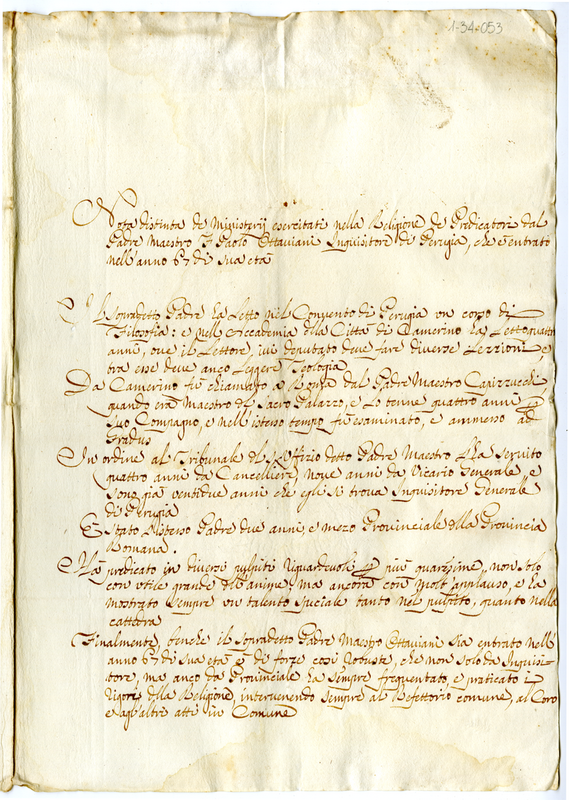 1-34-053
Nota distinta de Ministerij esercitati nella Religione de Predicatori dal
Padre Maestro F. Paolo Ottaviani Inquisitore di Perugia, che è entrato
nell'anno 67 di sua età
Il sopradetto Padre ha Letto nel Convento di Perugia un corso di
Filosofia: e nell'Accademia della Città di Camerino ha Letto quattro
anni, ove il Lettore, ivi deputato deve fare diverse Lezzioni, e
tra esse deve anco Leggere Teologia
Da Camerino fu chiamato a Roma dal Padre Maestro Capizzucchi
quando era Maestro del Sacro Palazzo, e Lo tenne quattro anni p
suo Compagno, e nell'istesso tempo fu esaminato, e ammesso ad
Gradus
In ordine al Tribunale del S. Offizio detto Padre Maestro Ha servito
quattro anni da Cancelliere, nove anni da Vicario Generale, e
sono già ventidue anni che egli si trova Inquisitore Generale
di Perugia
È stato l'istesso Padre due anni, e mezo Provinciale della Provincia
Romana.
Ha predicato in diversi pulpiti riguardevoli p più quaresime, non solo
con utile grande dell'anime, ma ancora con molt'applauso, e ha
mostrato sempre un talento speciale tanto nel pulpito, quanto nella
cattedra
Finalmente, benche il sopradetto Padre Maestro Ottaviani sia entrato nell'
anno 67 di sua età è di forze così robuste, che non solo da Inquisi-
tore, ma anco da Provinciale ha sempre frequentato, e praticato i
rigori della Religione, intervenendo sempre al Refettorio comune, al Coro
e agl'altri atti in Comune